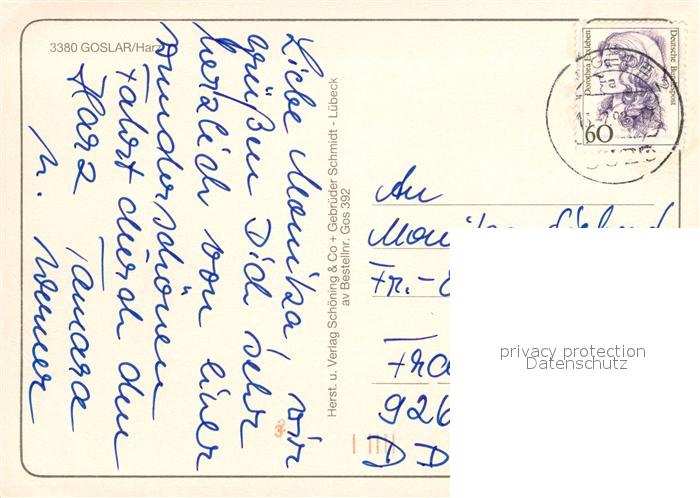 3380 GOSLAR/Harz
Liebe Monika, wir
grüßen Dich sehr
herzlich von einer
wunderschönen
Fahrt durch den
Harz Tamara
u. Werner
Herst. u. Verlag Schöning & Co + Gebrüder Schmidt - Lübeck
av Bestellnr. Gos 392
Dorothea Erxleben
Deutsche Bundespost
60
An
Fr.-
926
D
privacy protection
Datenschutz